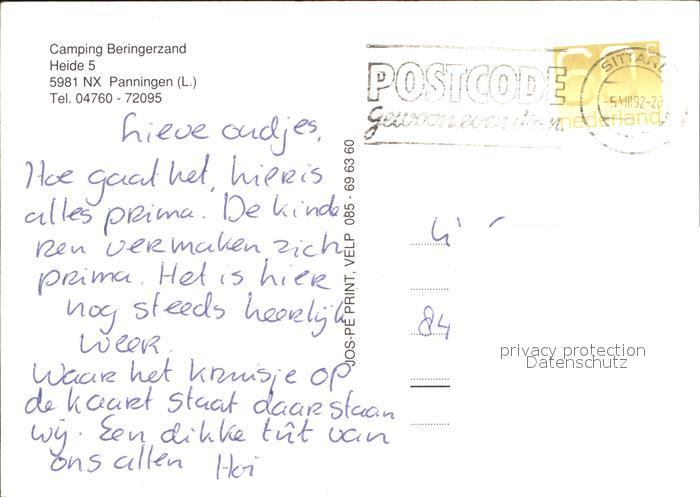 Camping Beringerzand
Heide 5
5981 NX Panningen (L.)
Tel. 04760 - 72095
POSTCODE
gewoon even doen.
60 c
nederland
SITTARD
-5.VIII.92-20
Lieve oudjes,
Hoe gaat het, hier is
alles prima. De kinde
ren vermaken zich
prima. Het is hier
nog steeds heerlijk
weer.
Waar het kruisje op
de kaart staat daar staan
wij. Een dikke tút van
ons allen Hoi
JOS-PÉ PRINT, VELP 085 - 69 63 60
84
privacy protection
Datenschutz